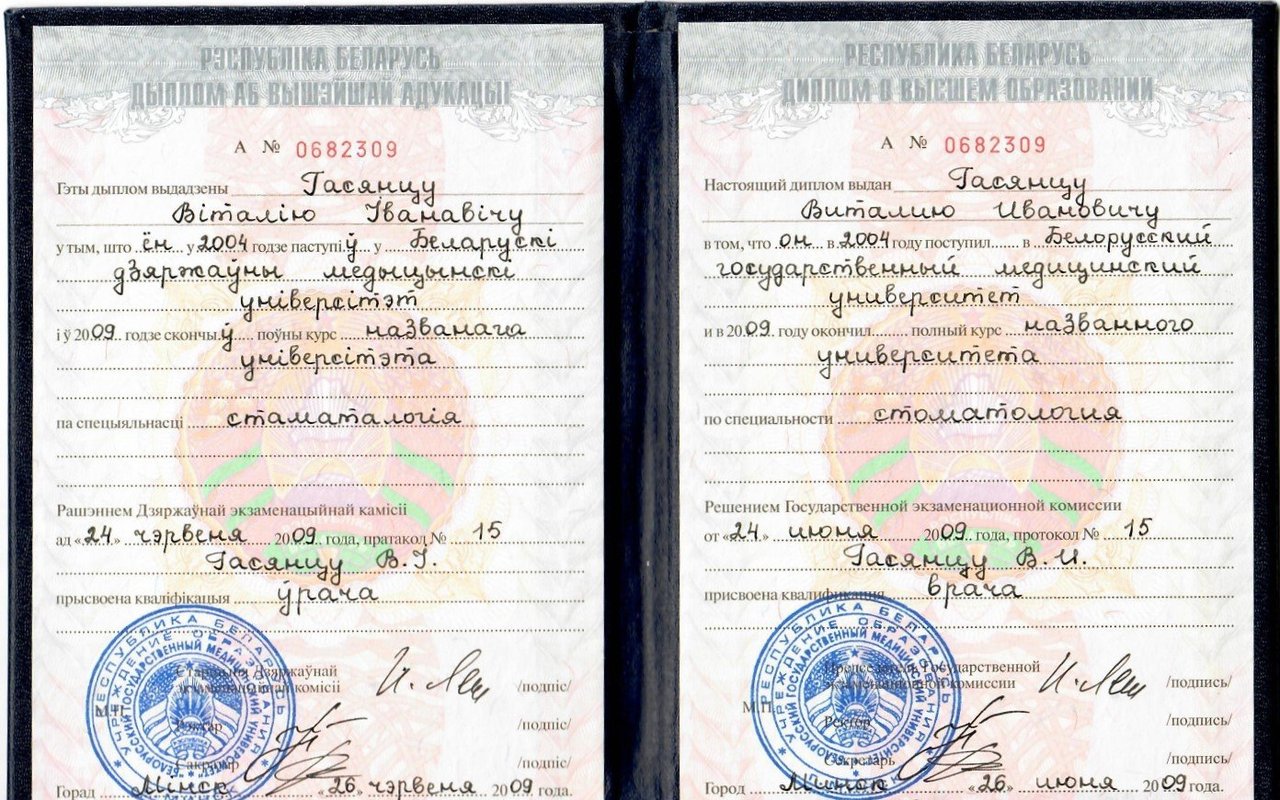 РЭСПУБЛІКА БЕЛАРУСЬ
ДЫПЛОМ АБ ВЫШЭЙШАЙ АДУКАЦЫІ
А № 0682309
Гэты дыплом выдадзены Гасянцу
Віталію Іванавічу
у тым, што ён у 2004 годзе паступіў у Беларускі
дзяржаўны медыцынскі
універсітэт
і ў 2009 годзе скончыў поўны курс названага
універсітэта
па спецыяльнасці стаматалогія
Рашэннем Дзяржаўнай экзаменацыйнай камісіі
ад «24» чэрвеня 2009 года, пратакол № 15
Гасянцу В.І.
прысвоена кваліфікацыя ўрача
Старшыня Дзяржаўнай
экзаменацыйнай камісіі /подпіс/
М.П.
Рэктар /подпіс/
Сакратар /подпіс/
Горад Мінск «26» чэрвеня 2009 года.
РЕСПУБЛИКА БЕЛАРУСЬ
УЧРЕЖДЕНИЕ ОБРАЗОВАНИЯ
БЕЛОРУССКИЙ ГОСУДАРСТВЕННЫЙ МЕДИЦИНСКИЙ УНИВЕРСИТЕТ
РЕСПУБЛИКА БЕЛАРУСЬ
ДИПЛОМ О ВЫСШЕМ ОБРАЗОВАНИИ
А № 0682309
Настоящий диплом выдан Гасянцу
Виталию Ивановичу
в том, что он в 2004 году поступил в Белорусский
государственный медицинский
университет
и в 2009 году окончил полный курс названного
университета
по специальности стоматология
Решением Государственной экзаменационной комиссии
от «24» июня 2009 года, протокол № 15
Гасянцу В.И.
присвоена квалификация врача
Председатель Государственной
экзаменационной комиссии /подпись/
М.П.
Ректор /подпись/
Секретарь /подпись/
Город Минск «26» июня 2009 года.
РЕСПУБЛИКА БЕЛАРУСЬ
УЧРЕЖДЕНИЕ ОБРАЗОВАНИЯ
БЕЛОРУССКИЙ ГОСУДАРСТВЕННЫЙ МЕДИЦИНСКИЙ УНИВЕРСИТЕТ